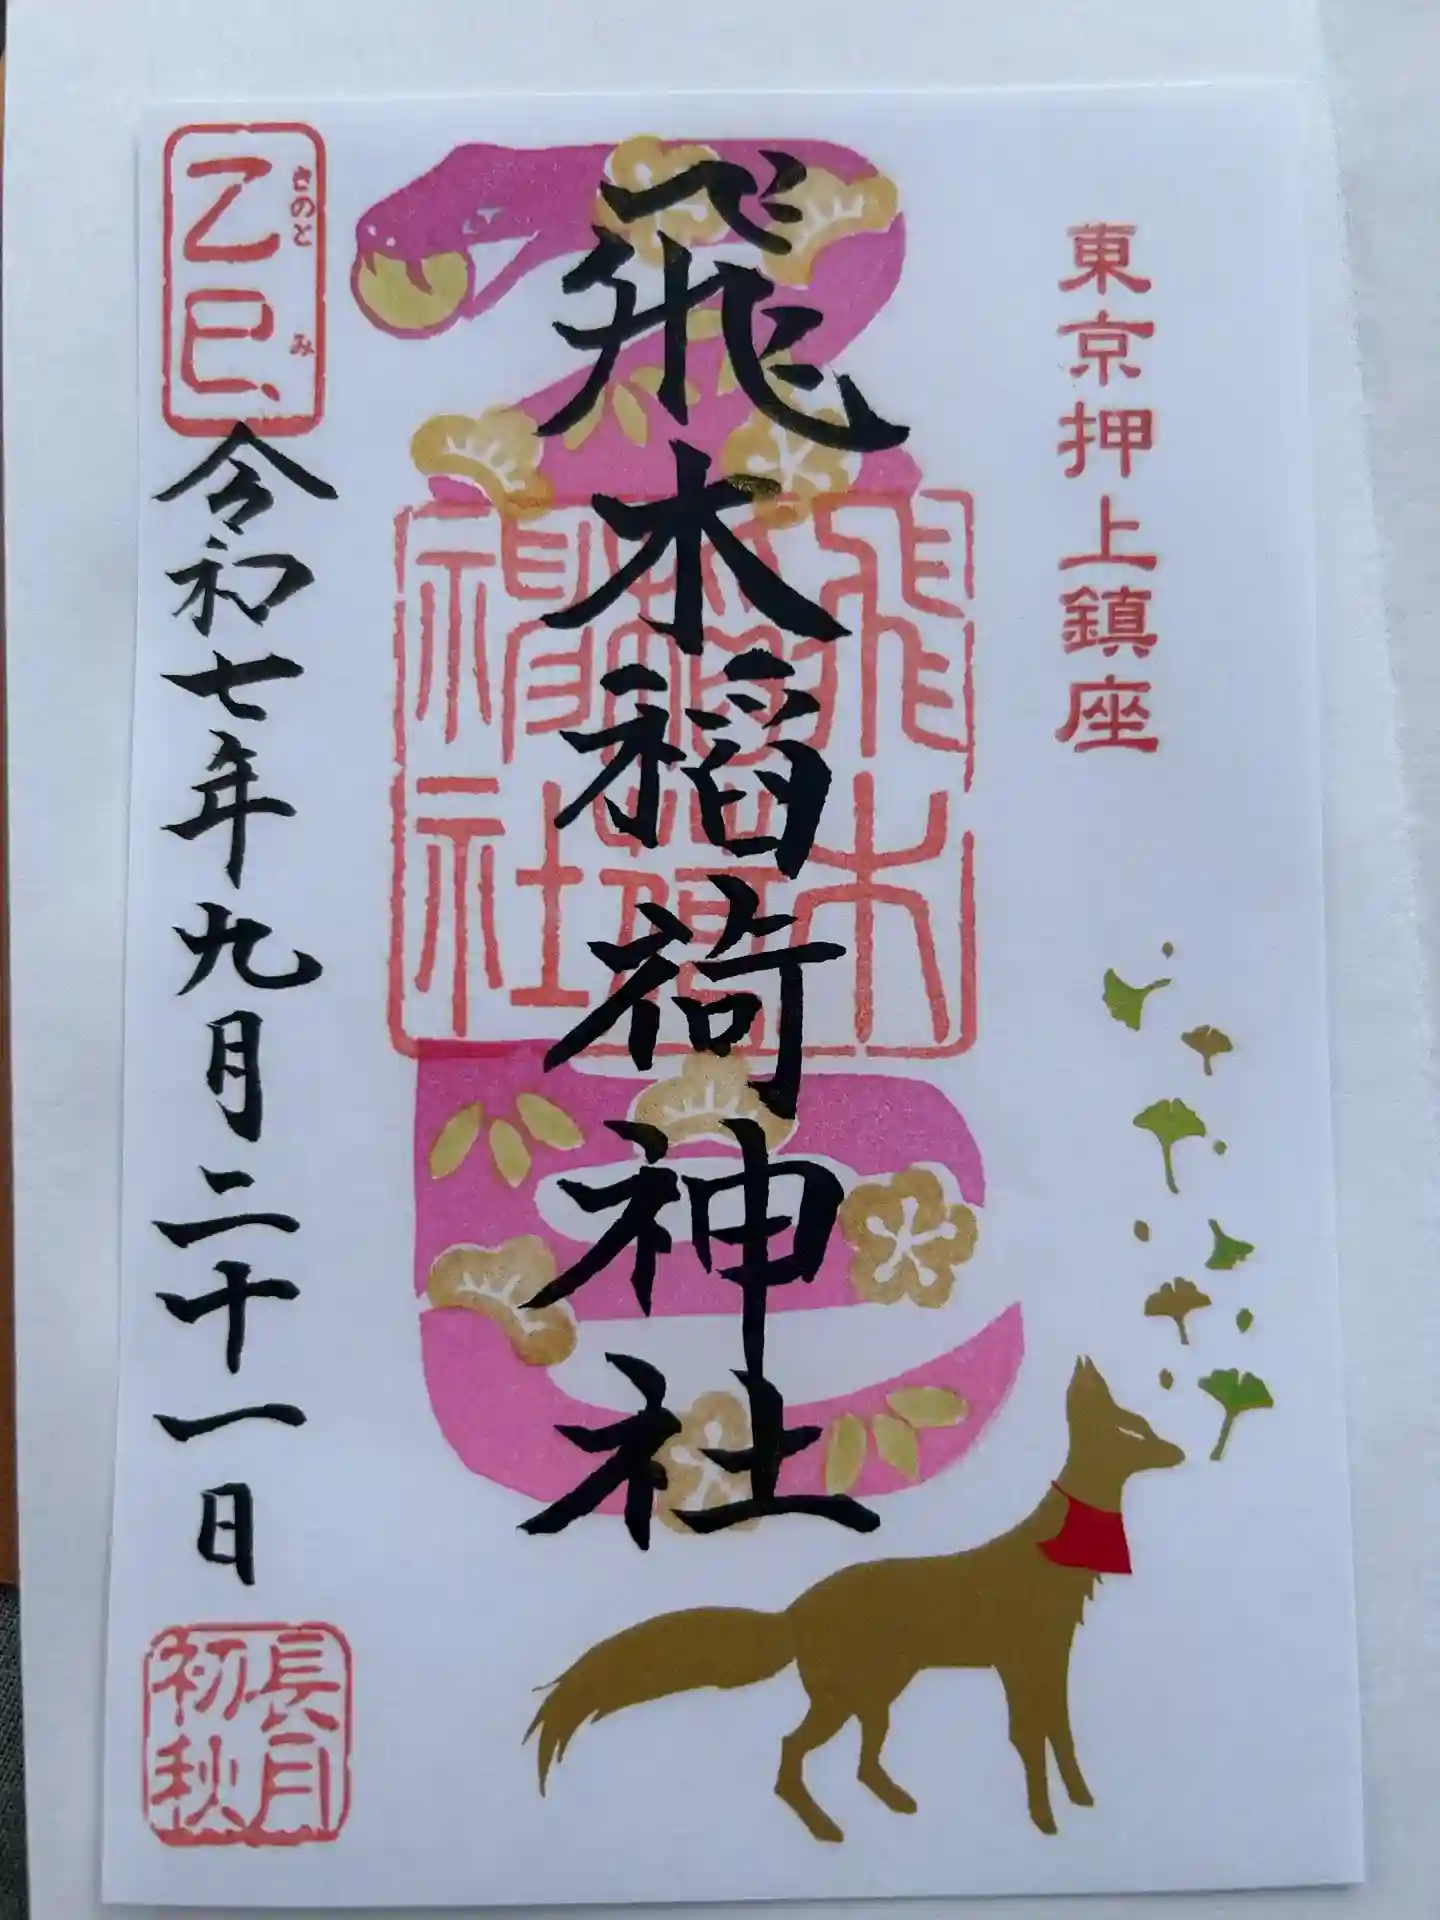 東京押上鎮座
飛木稲荷神社
飛木
稲荷
神社
乙巳
きのと
み
令和七年九月二十一日
長月
初秋